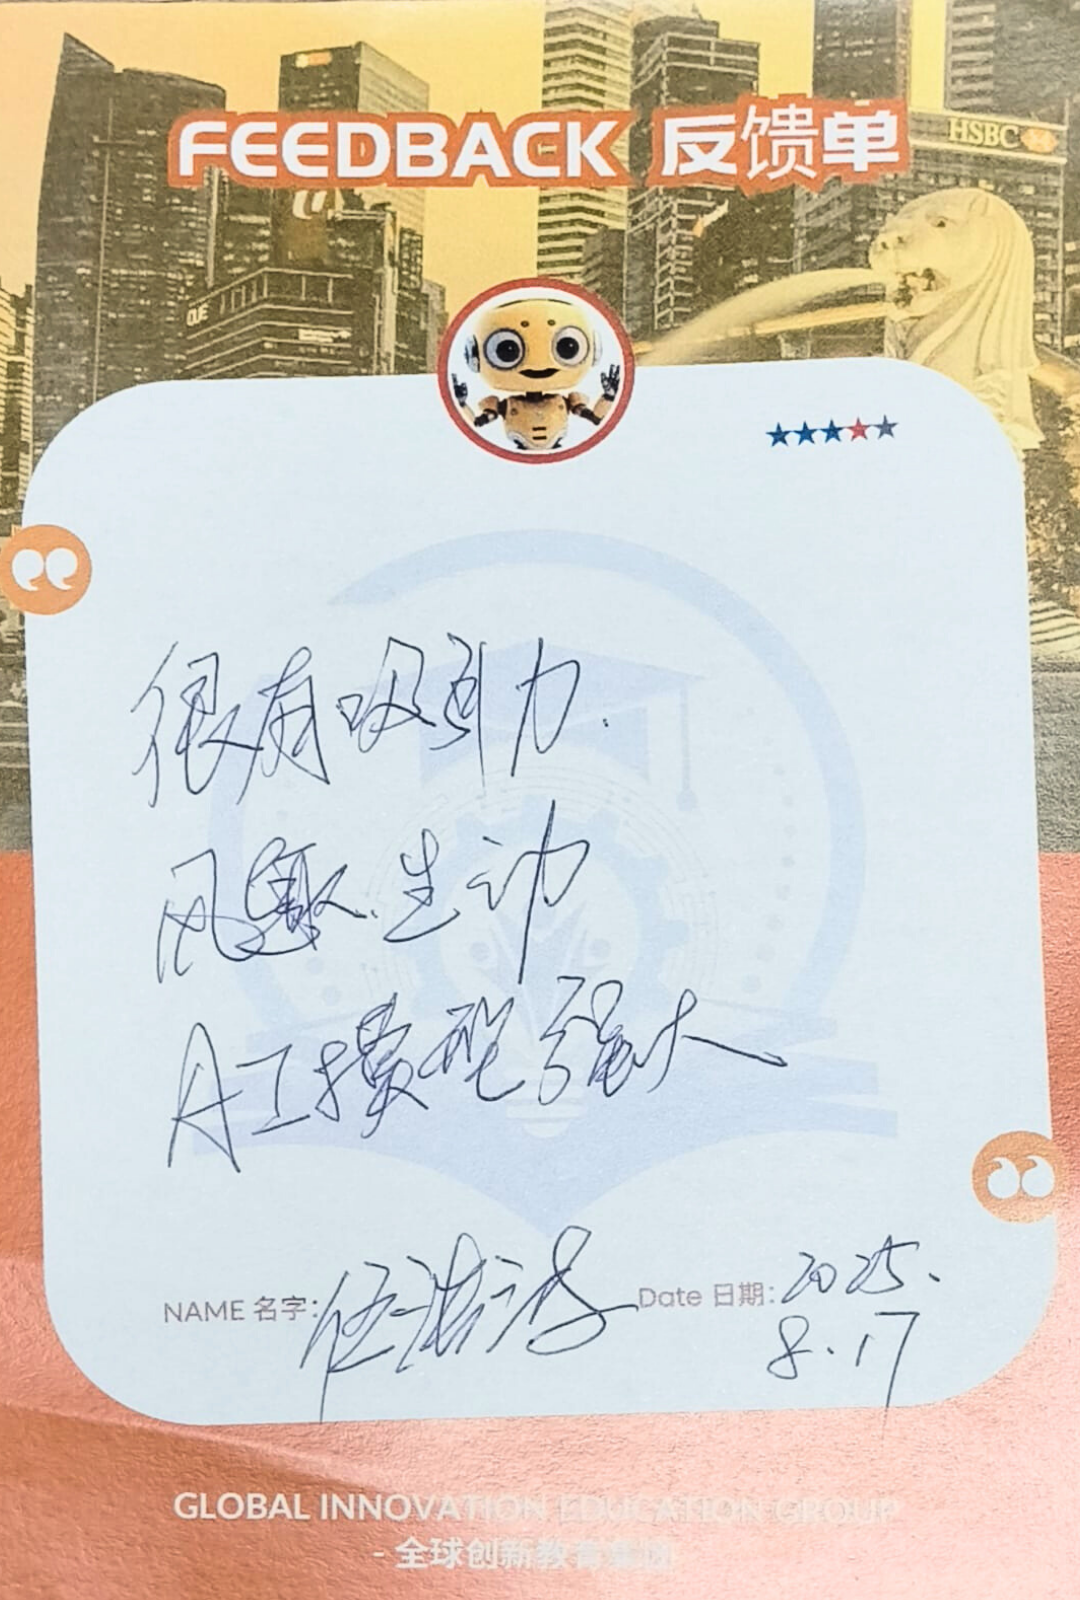 FEEDBACK 反馈单
HSBC
CUE
很有吸引力.
风趣.生动
AI模型强大
NAME 名字:
Date 日期: 2025.
8.17
GLOBAL INNOVATION EDUCATION GROUP
- 全球创新教育集团